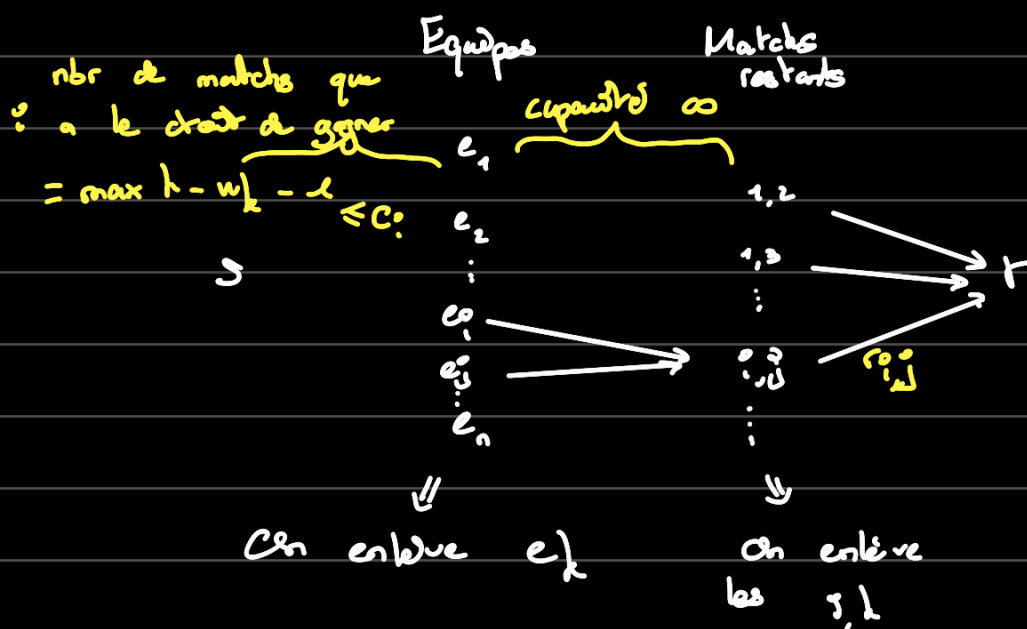 Equipes
Matchs
restants
nbr de matchs que
i a le droit de gagner
= max k - wk - l
≤ Ci
capacité ∞
e1
e2
⋮
ei
ej
⋮
en
1,2
1,3
⋮
i,j
⋮
s
ri,j
⇓
⇓
On enlève ek
On enlève
les j,k